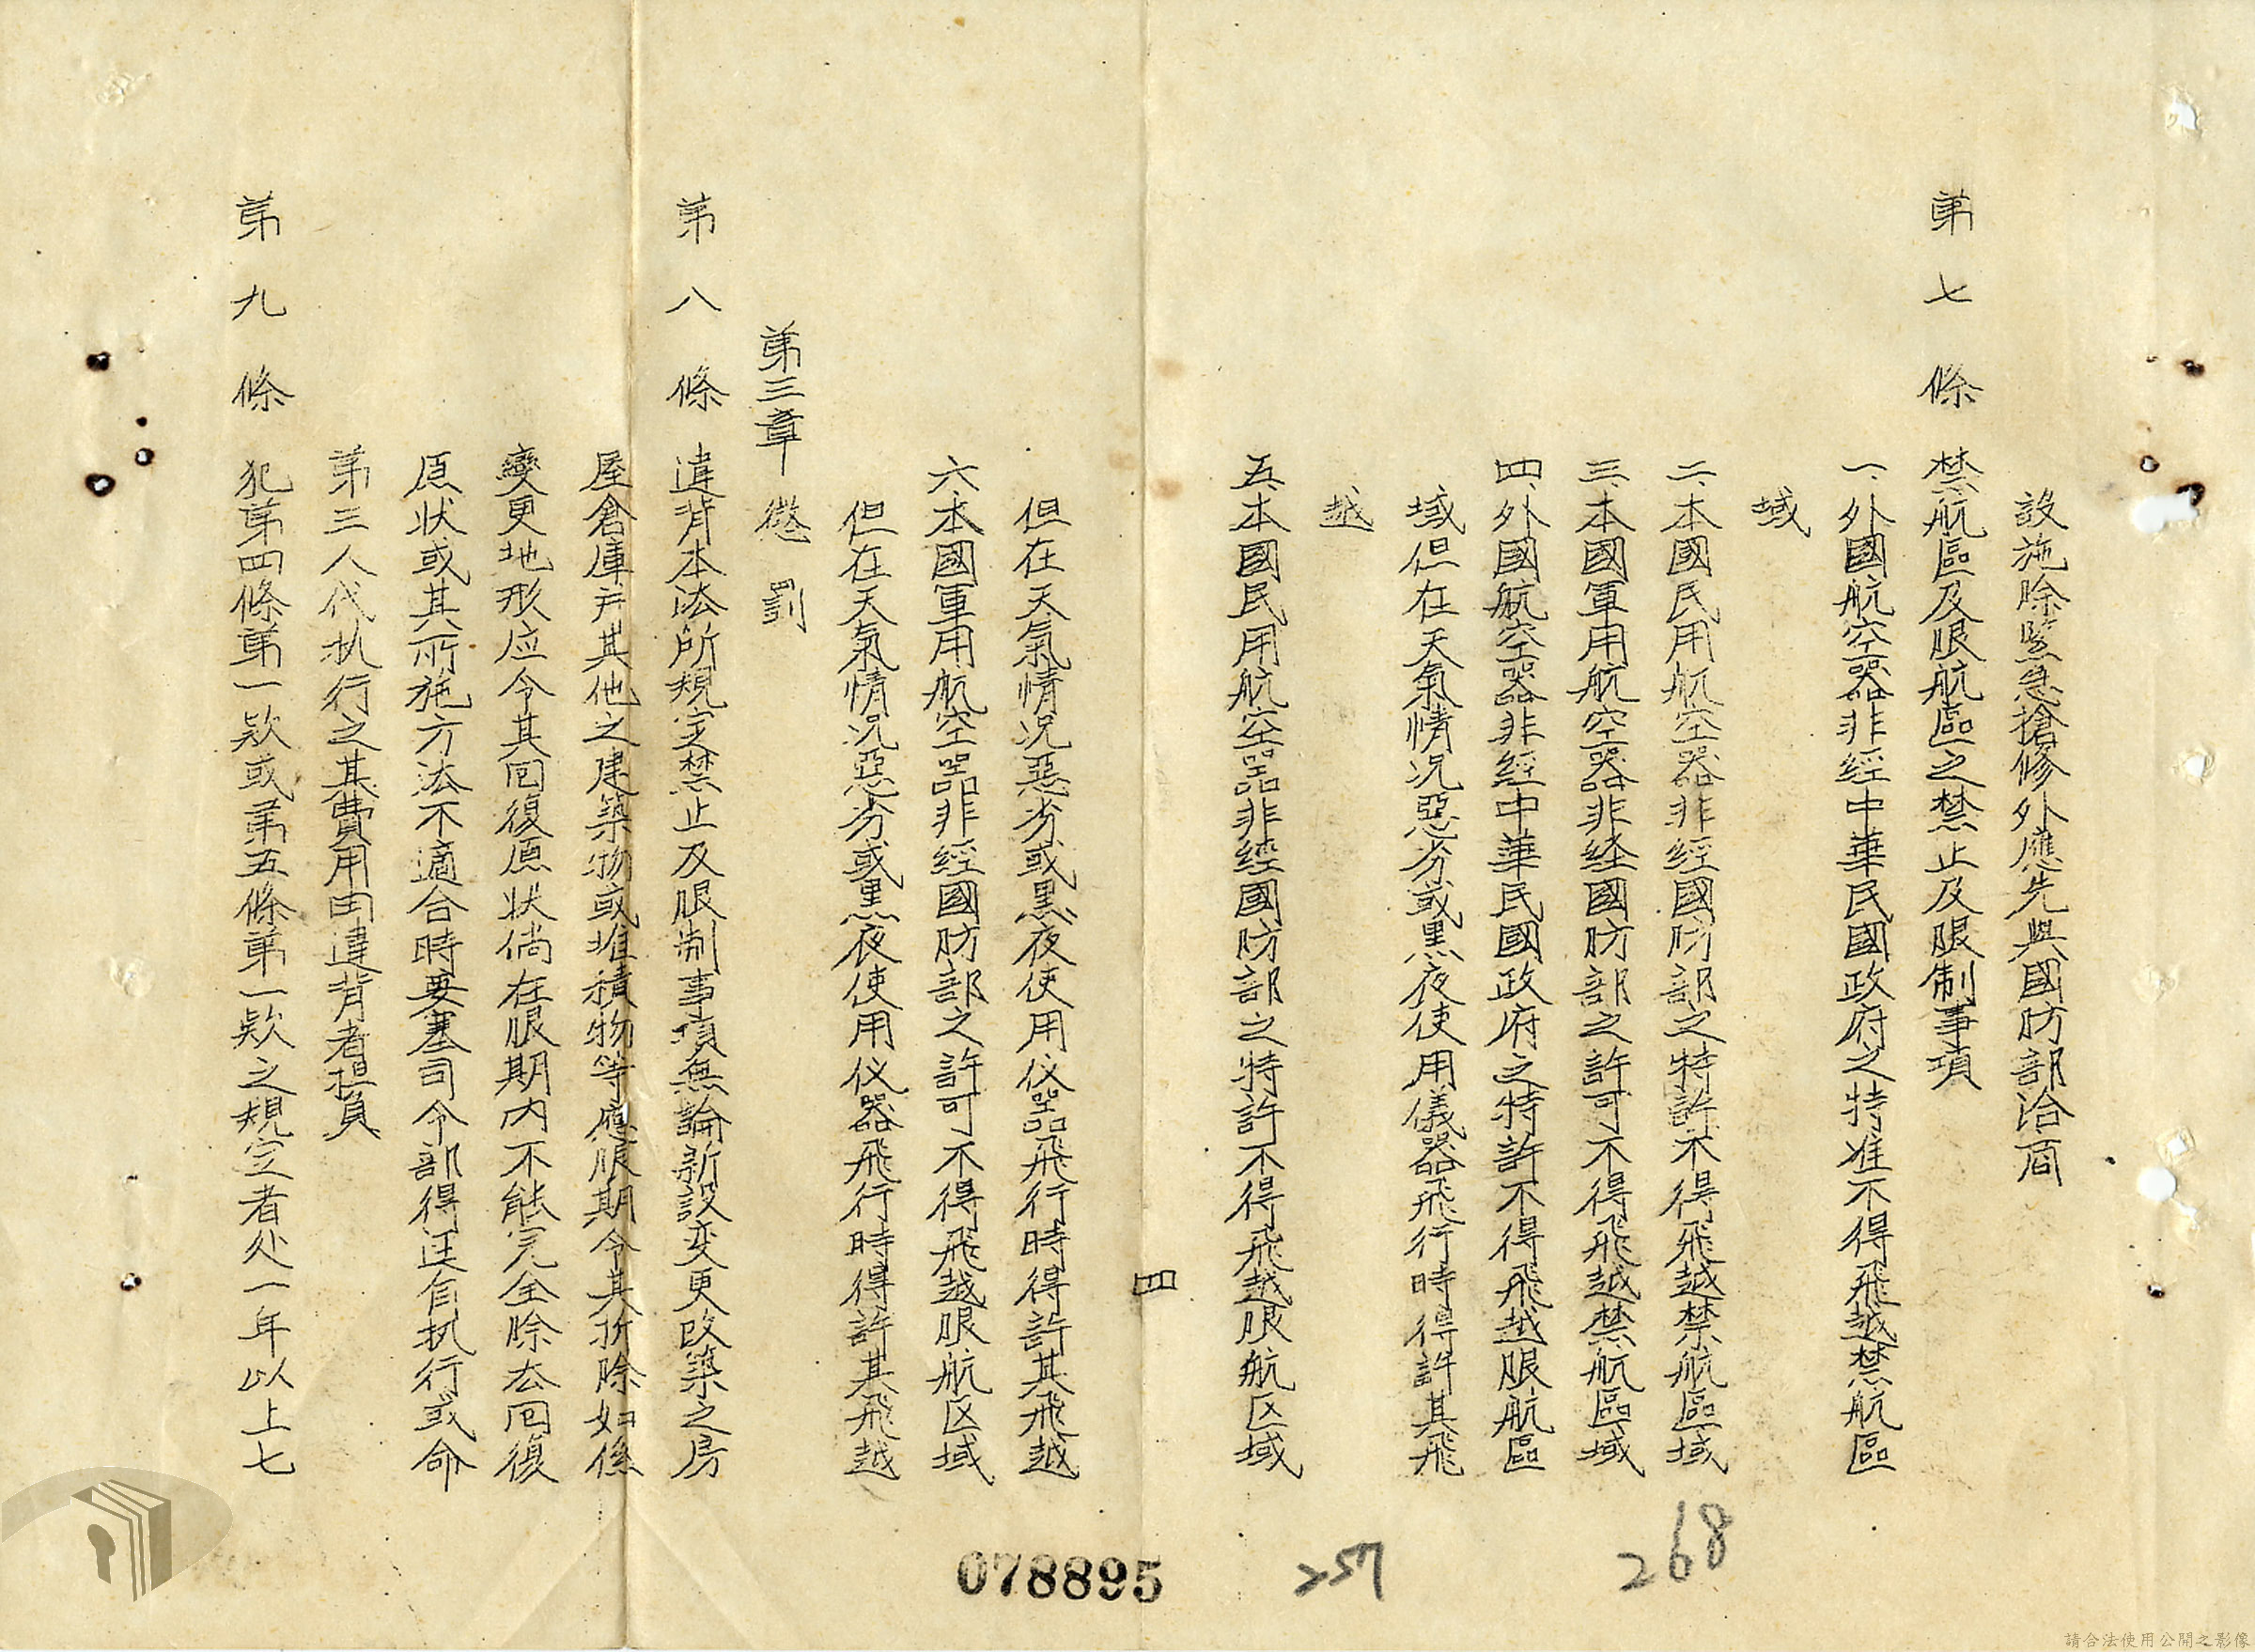 設施除緊急搶修外應先與國防部洽商
第七條　禁航區及限航區之禁止及限制事項
一、外國航空器非經中華民國政府之特准不得飛越禁航區
域
二、本國民用航空器非經國防部之特許不得飛越禁航區域
三、本國軍用航空器非経國防部之許可不得飛越禁航區域
四、外國航空器非經中華民國政府之特許不得飛越限航區
域但在天氣情况惡劣或黑夜使用儀器飛行時得許其飛
越
五、本國民用航空器非經國防部之特許不得飛越限航区域
四
但在天氣情况惡劣或黑夜使用仪器飛行時得許其飛越
六、本國軍用航空器非經國防部之許可不得飛越限航区域
但在天氣情况惡劣或黑夜使用仪器飛行時得許其飛越
第三章　懲罰
第八條　違背本法所規定禁止及限制事項無論新設変更改築之房
屋倉庫戶其他之建築物或堆積物等應限期令其拆除如係
變更地形应令其回復原狀倘在限期內不能完全除去回復
原狀或其所施方法不適合時要塞司令部得逕自执行或命
第三人代执行之其費用由違背者担負
第九條　犯第四條第一欵或第五條第一欵之規定者处一年以上七
078895
257
268
請合法使用公開之影像